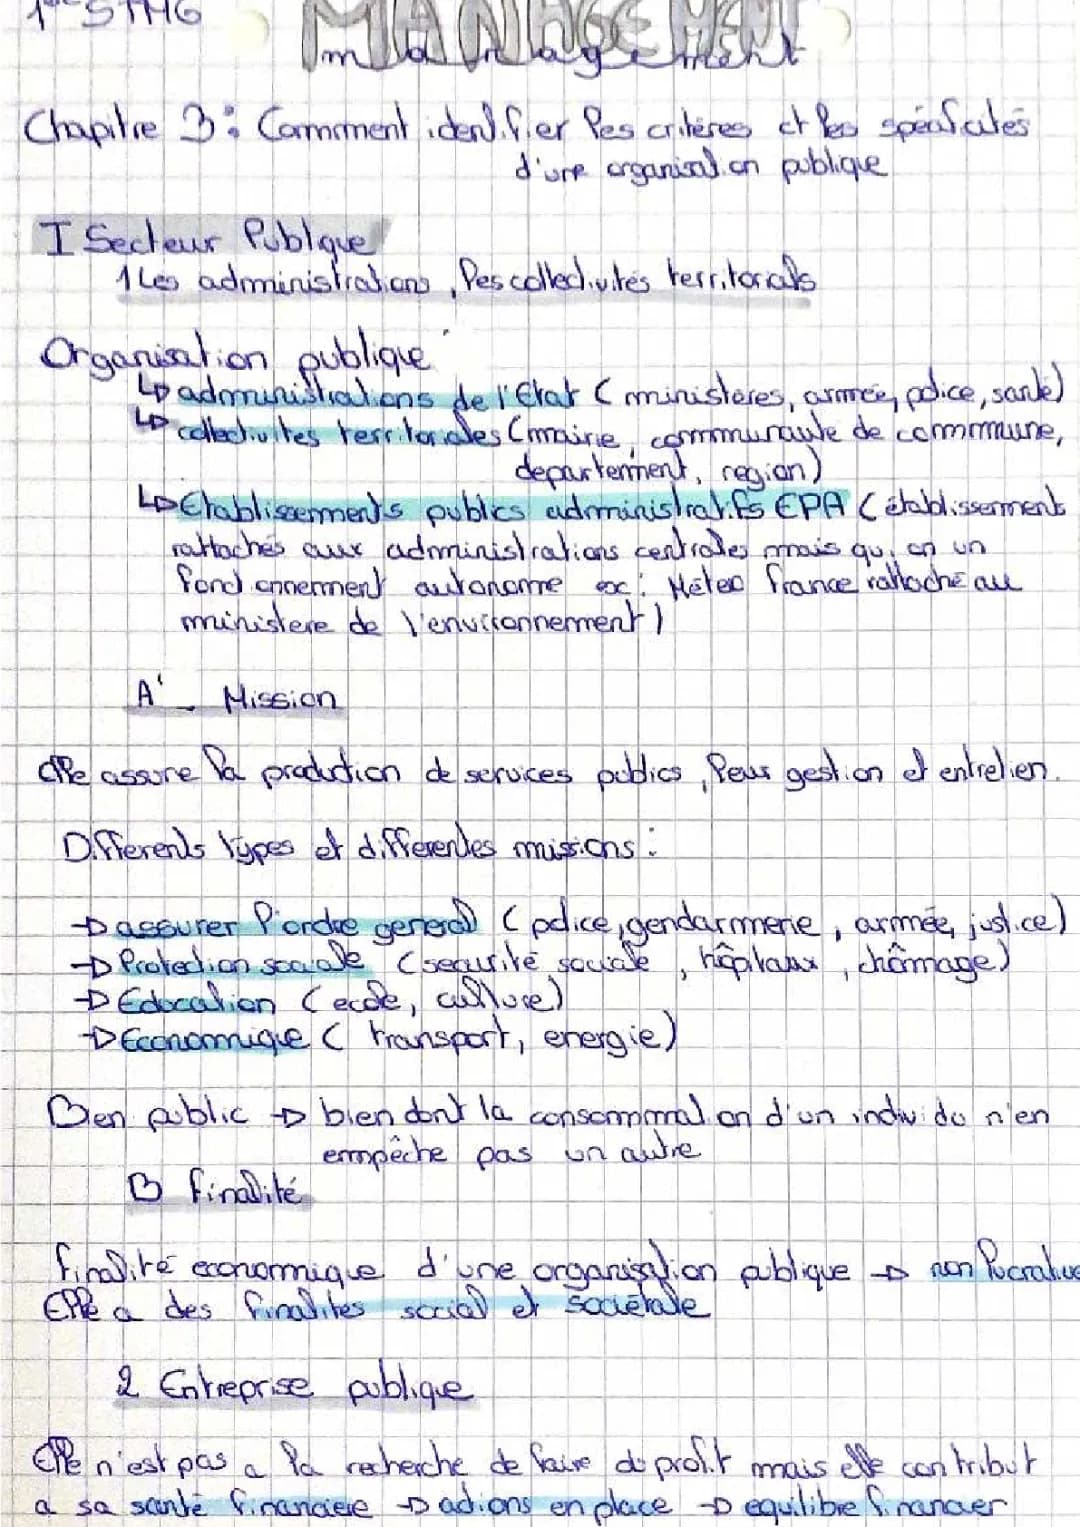 1re STMG
MANAGEMENT
management
Chapitre 3 : Comment identifier les critères et les spécificités
d'une organisation publique
I Secteur Publique
1 Les administrations, les collectivités territorials
Organisation publique
↳ administrations de l'Etat (ministères, armée, police, santé)
↳ collectivites territoriales (mairie, communauté de commmune,
departement, region)
↳ Etablissements publics administratifs EPA (établissement
rattachés aux administrations centrales mais qui on un
fonctionnement autonome ex : Méteo France rattaché au
ministere de l'environnement)
A - Mission
elle assure la production de services publics, leurs gestion et entretien.
Differents types et differentes missions :
→ assurer l'ordre general (police, gendarmerie, armée, justice)
→ Protection sociale (securité sociale, hôpitaux, chômage)
→ Education (ecole, culture)
→ Economique (transport, energie)
Bien public → bien dont la consommation d'un individu n'en
empêche pas un autre
B finalité
finalité economique d'une organisation publique → non lucrative
Elle a des finalites social et sociétale
2 Entreprise publique
Elle n'est pas a la recherche de faire du profit mais elle contribut
a sa santé financiere → actions en place → equilibre financier